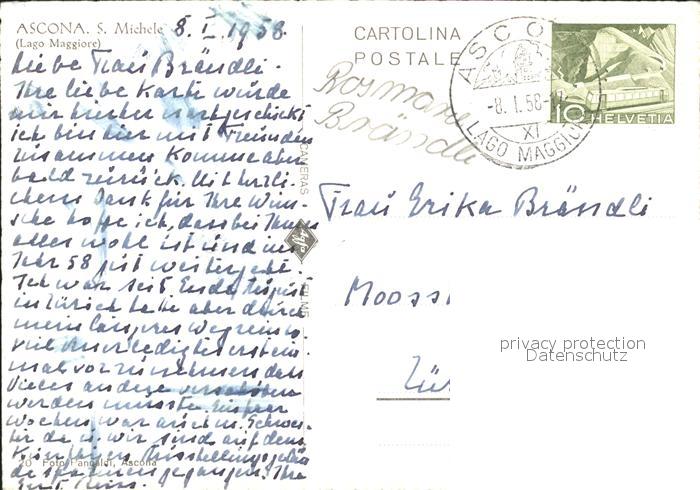 ASCONA. S. Michele 8. I. 1958.
(Lago Maggiore)
Liebe Frau Brändli.
Ihre liebe Karte wurde
mir hierher nachgeschickt
ich bin hier mit Freunden
zusammen komme aber
bald zurück. Mit herzli-
chem Dank für Ihre Wün-
sche hoffe ich, dass bei Ihnen
alles wohl ist und im
Jahr 58 gut weitergeht.
Ich war seit Ende August
in Zürich hatte aber durch
mein langes Wegsein so
viel Unerledigtes erstein-
mal vorzunehmen dass
Vieles andere verschoben
werden musste. Ein paar
Wochen war auch m. Schwes-
ter da u. wir sind auf dem
spazieren gegangen. Ihre
20 Foto Pancaldi, Ascona
CARTOLINA
POSTALE
ASCONA
-8. 1. 58-
XI
LAGO MAGGIORE
10 HELVETIA
Rosmarie
Brändle
CAMERAS
Agfa
FILME
Frau Erika Brändli
Mooss
Zür
privacy protection
Datenschutz